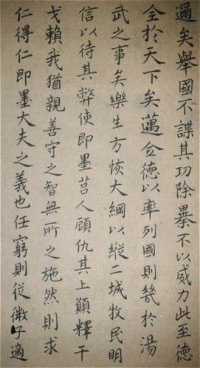 邇矣舉國不謀其功除暴不以威力此至德
全於天下矣邁全德以率列國則幾於湯
武之事矣樂生方恢大綱以縱二城牧民明
信以待其弊使即墨莒人顧仇其上願釋干
戈賴我猶親善守之智無所之施然則求
仁得仁即墨大夫之義也任窮則從微子適